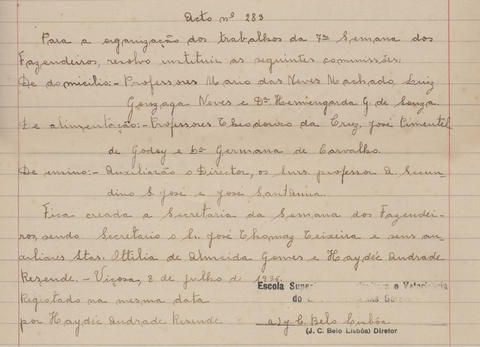 Acto nº 283
Para a organização dos trabalhos da 7ª Semana dos
Fazendeiros, resolvo instituir as seguintes commissões:
De domicilio:- Professores Mario das Neves Machado, Luiz
Gonzaga Neves e Dª Hermengarda G. de Souza.
De alimentação:- Professores Theodouro da Cruz, José Pimentel
de Godoy e Dª Germana de Carvalho.
De ensino:- Auxiliarão o Director, os Snrs. professor D. Secun-
dino S. José e José Sant'Anna.
Fica creada a Secretaria da Semana dos Fazendei-
ros, sendo Secretario o Sr. José Thomaz Teixeira e seus au-
xiliares Stas. Ottilia de Almeida Gomes e Haydée Andrade
Rezende. - Viçosa, 8 de julho de 1936.
Escola Superior e Veterinaria
Registado na mesma data
do
por Haydée Andrade Rezende
a) J. C. Belo Lisbôa
(J. C. Belo Lisbôa) Diretor